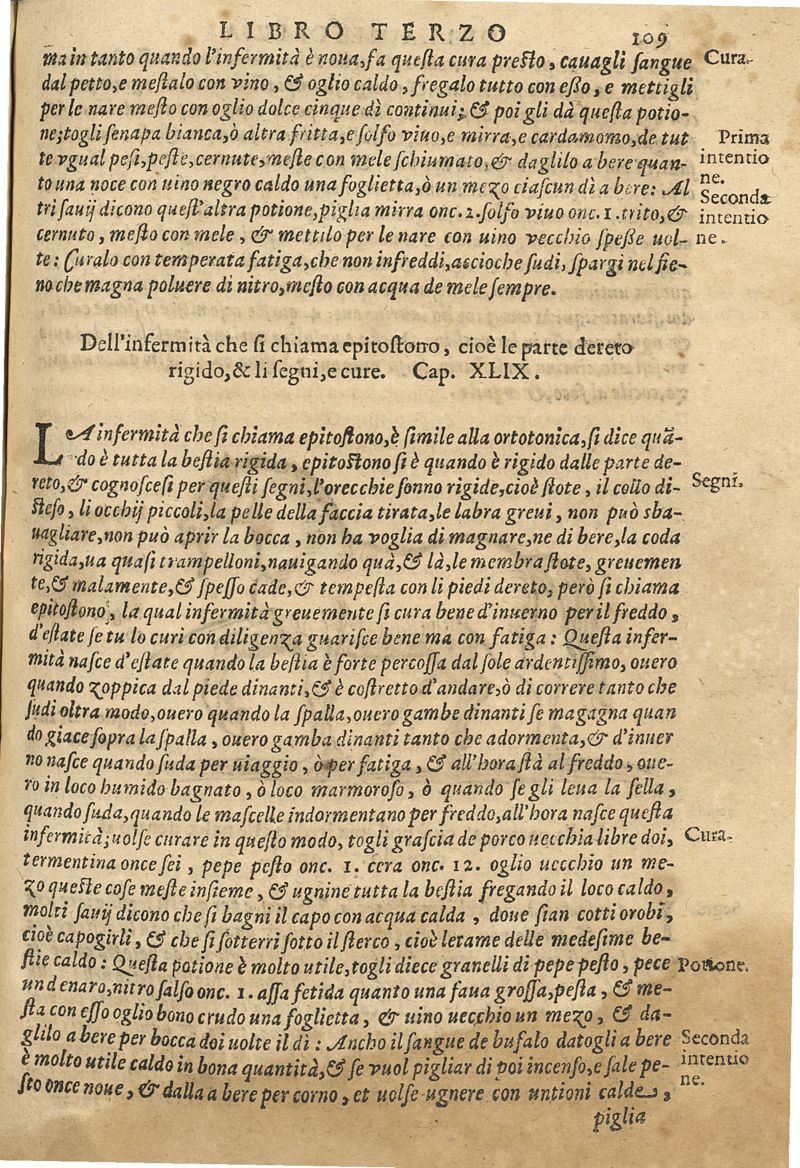 LIBRO TERZO 109
ma in tanto quando l'infermità è noua, fa questa cura presto, cauagli sangue Cura.
dal petto, e mestalo con vino, & oglio caldo, fregalo tutto con esso, e mettigli
per le nare mesto con oglio dolce cinque dì continui; & poi gli dà questa potio-
ne; togli senapa bianca, ò altra fritta, e solfo viuo, e mirra, e cardamomo, de tut Prima
te vgual pesi, peste, cernute, meste con mele schiumato, & daglilo a bere quan- intentio
to una noce con uino negro caldo una foglietta, ò un mezo ciascun dì a bere: Al ne.
tri sauij dicono quest'altra potione, piglia mirra onc. 2. solfo viuo onc. 1. trito, & Seconda intentio
cernuto, mesto con mele, & mettilo per le nare con uino vecchio spesse uol- ne.
te: Curalo con temperata fatiga, che non infreddi, accioche sudi, spargi nel fie-
no che magna poluere di nitro, mesto con acqua de mele sempre.
Dell'infermità che si chiama epitostono, cioè le parte dereto
rigido, & li segni, e cure. Cap. XLIX.
LA infermità che si chiama epitostono, è simile alla ortotonica, si dice quã-
do è tutta la bestia rigida, epitostono si è quando è rigido dalle parte de-
reto, & cognoscesi per questi segni, l'orecchie sonno rigide, cioè stote, il collo di- Segni.
steso, li occhij piccoli, la pelle della faccia tirata, le labra greui, non può sba-
uagliare, non può aprir la bocca, non ha voglia di magnare, ne di bere, la coda
rigida, ua quasi trampelloni, nauigando quà, & là, le membra stote, greuemen
te, & malamente, & spesso cade, & tempesta con li piedi dereto, però si chiama
epitostono, la qual infermità greuemente si cura bene d'inuerno per il freddo,
d'estate se tu lo curi con diligenza guarisce bene ma con fatiga: Questa infer-
mità nasce d'estate quando la bestia è forte percossa dal sole ardentissimo, ouero
quando zoppica dal piede dinanti, & è costretto d'andare, ò di correre tanto che
sudi oltra modo, ouero quando la spalla, ouero gambe dinanti se magagna quan
do giace sopra la spalla, ouero gamba dinanti tanto che adormenta, & d'inuer
no nasce quando suda per uiaggio, ò per fatiga, & all'hora stà al freddo, oue-
ro in loco humido bagnato, ò loco marmoroso, ò quando se gli leua la sella,
quando suda, quando le mascelle indormentano per freddo, all'hora nasce questa
infermità; uolse curare in questo modo, togli grascia de porco uecchia libre doi, Cura.
termentina once sei, pepe pesto onc. 1. cera onc. 12. oglio uecchio un me-
zo queste cose meste insieme, & ugnine tutta la bestia fregando il loco caldo,
molti sauij dicono che si bagni il capo con acqua calda, doue sian cotti orobi,
cioè capogirli, & che si sotterri sotto il sterco, cioè letame delle medesime be-
stie caldo: Questa potione è molto utile, togli diece granelli di pepe pesto, pece Potione.
un denaro, nitro salso onc. 1. assa fetida quanto una faua grossa, pesta, & me-
sta con esso oglio bono crudo una foglietta, & uino uecchio un mezo, & da-
glilo a bere per bocca doi uolte il dì: Ancho il sangue de bufalo datogli a bere Seconda
è molto utile caldo in bona quantità, & se vuol pigliar di poi incenso, e sale pe- intentio
sto once noue, & dalla a bere per corno, et uolse ugnere con untioni calde, ne.
piglia